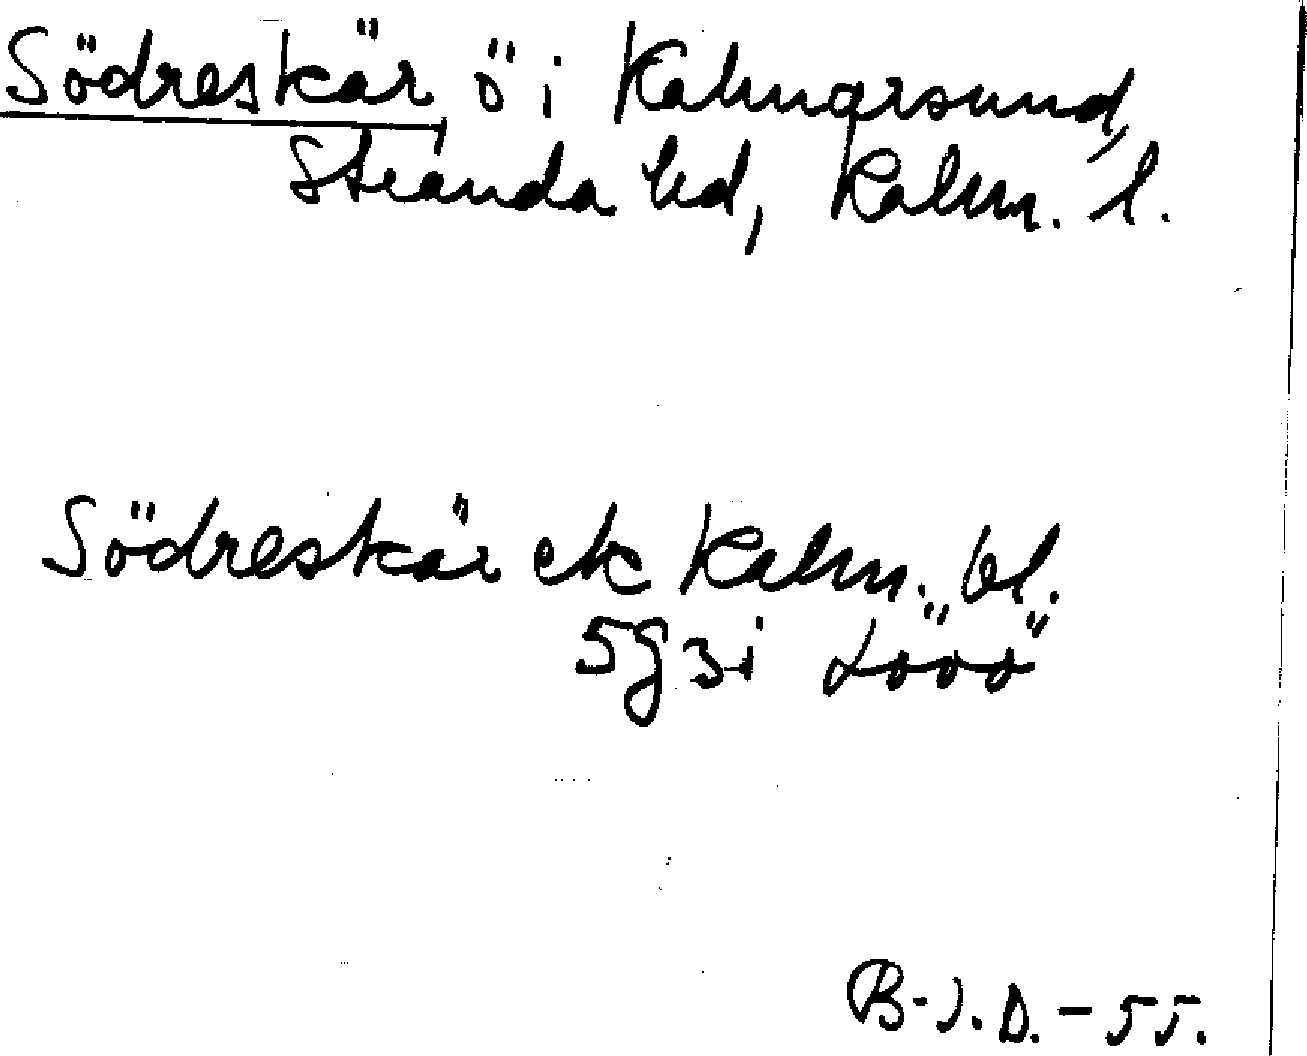 Södreskär, ö i Kalmarsund,
Stranda hd, Kalm. l.
Södreskär ek Kalm. bl.
5g3i Lööö
B-J.D. - 55.